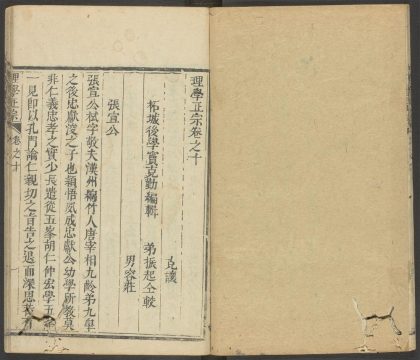 理學正宗卷之十
柘城後學竇克勤編輯
弟
克讓
振起仝較
男容莊
張宣公
張宣公栻字敬夫漢州綿竹人唐宰相九齡弟九皋
之後忠獻浚之子也穎悟夙成忠獻公幼學所教莫
非仁義忠孝之實少長遣從五峯胡仁仲宏學五峯
一見即以孔門論仁親切之旨告之退而深思若有
理學正宗
卷之十